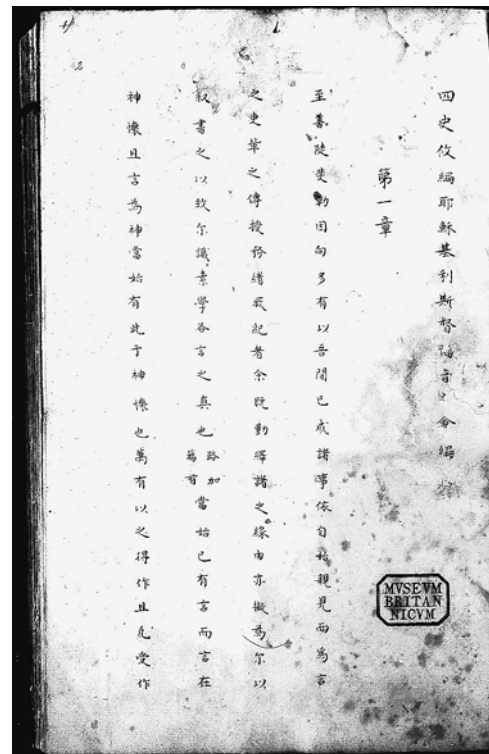 四史攸編耶穌基利斯督福音之會編
第一章
至善陡斐勒因向多有以吾間已成諸事依自始親見而為言
之吏輩之傳授務繕厥紀者余既勤繹諸之緣由亦擬為尔以
叙書之以致尔識素學各言之真也路加篇首當始已有言而言在
神懷且言為神當始有此于神懷也萬有以之得作且無受作
MVSEVM
BRITAN
NICVM